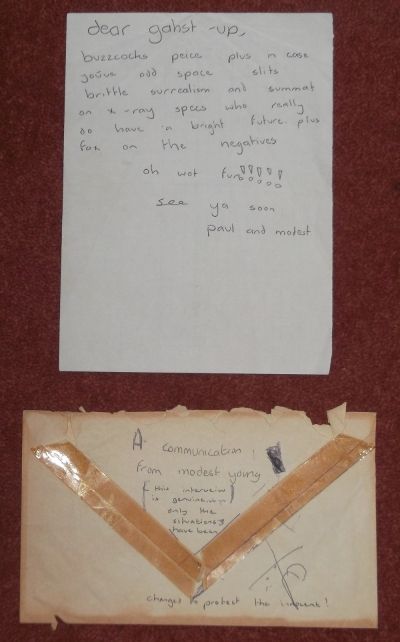 dear gahst-up,
buzzcocks peice plus in case
you've odd space slits
brittle surrealism and summat
on x-ray specs who really
do have a bright future. plus
fax on the negatives
oh wot fun!!!!!
see ya soon
paul and modest
A communication!
from modest young
(this interview
is genuine
only the
situations
have been
changed to protect the innocent!